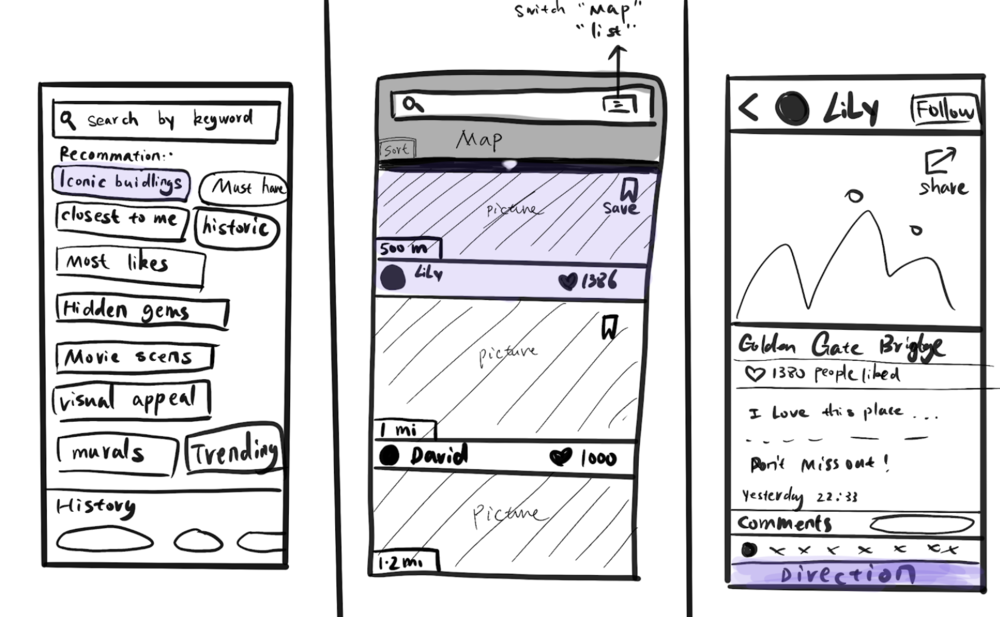 search by keyword
Recommation:
Iconic buidlings
Must have
closest to me
historic
Most likes
Hidden gems
Movie scens
visual appeal
murals
Trending
History
switch "Map"
"list"
Sort
Map
picture
Save
500 m
LiLy
1386
picture
1 mi
David
1000
picture
1.2 mi
LiLy
Follow
share
Goldon Gate Brigbge
1380 people liked
I Love this place ...
Don't Miss out!
Yesterday 22:33
Comments
Direction